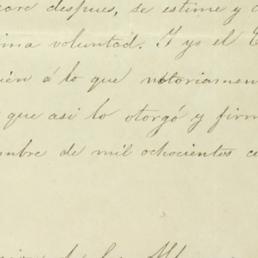 despues, se estime y
voluntad. Y yo el
á lo que notoriamen
que asi lo otorgó y firm
mbre de mil ochocientos c